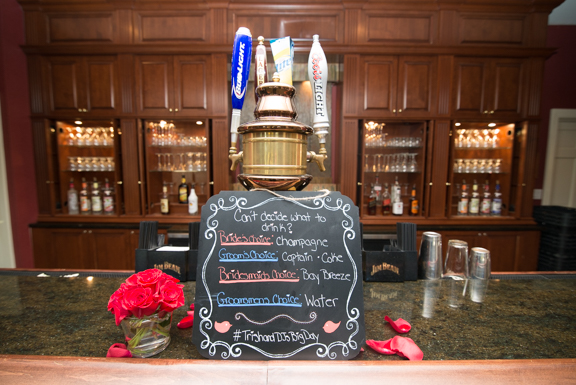 BUD LIGHT
Coors LIGHT
Can't decide what to
drink?
Bride's Choice: Champagne
Groom's Choice: Captain + Coke
Bridesmaids Choice: Bay Breeze
Groomsmens Choice: Water
#TrishandDJsBigDay
JIM BEAM
JIM BEAM